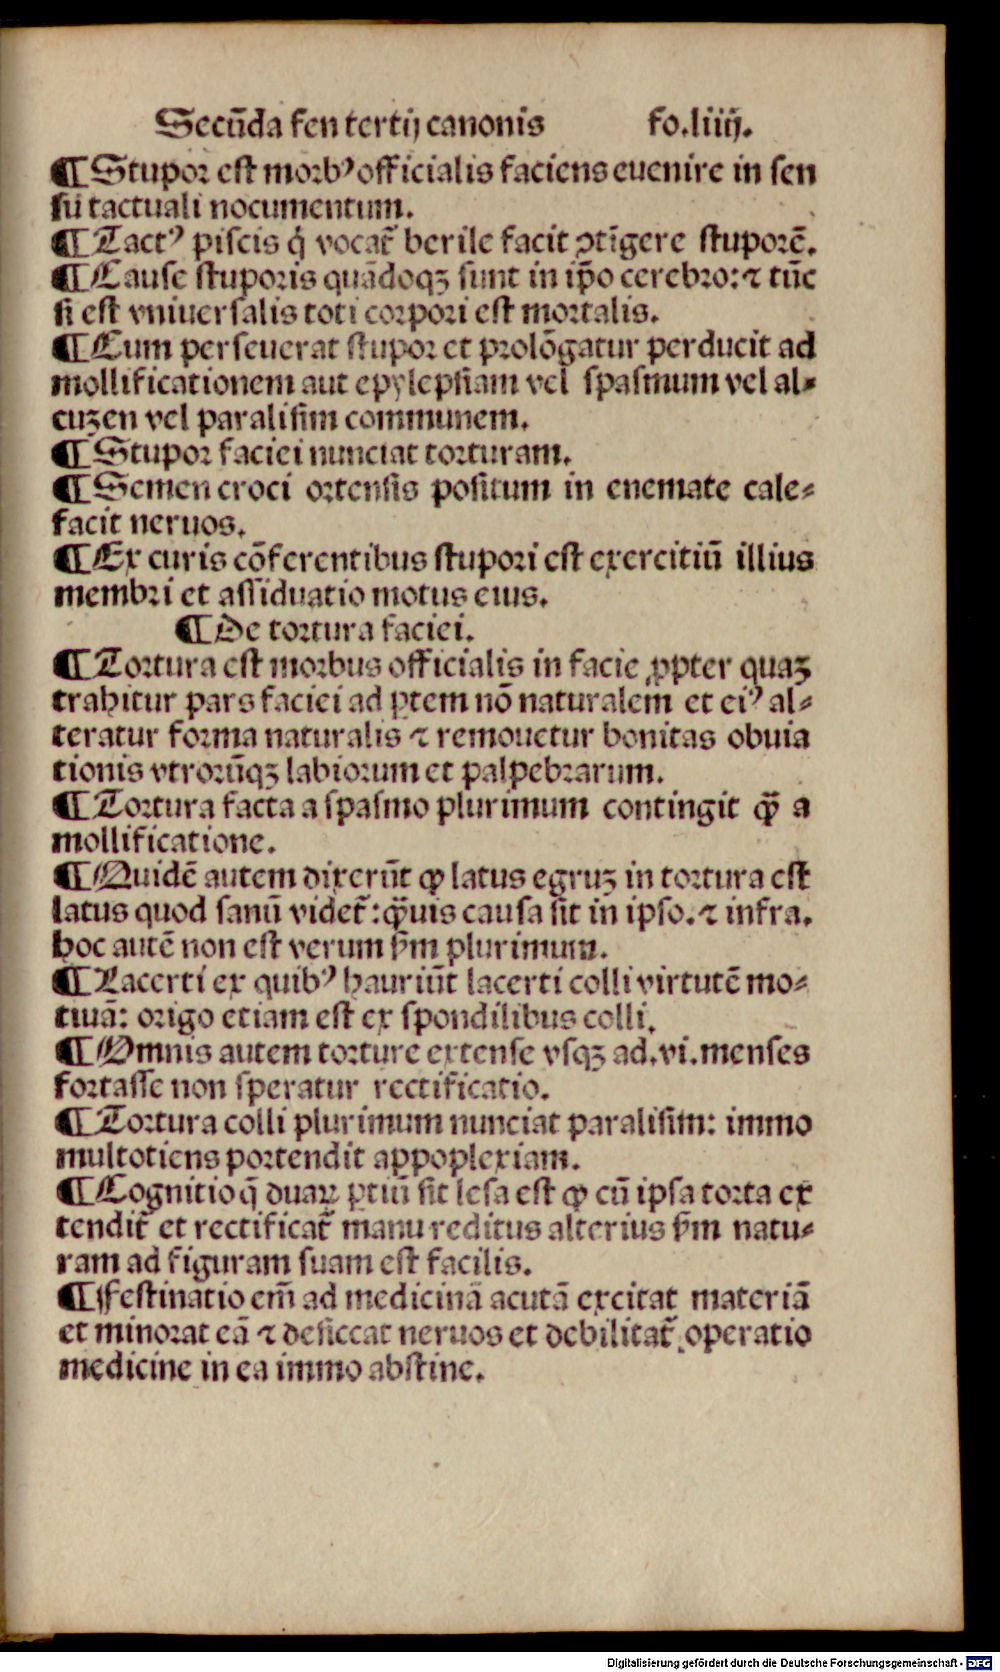 Secūda fen tertij canonis fo.liiij.
¶ Stupor est morbꝰ officialis faciens euenire in sen
sū tactuali nocumentum.
¶ Tactꝰ piscis q̇ vocat᷑ berile facit ↄtīgere stuporē.
¶ Cause stuporis quādoqꝫ sunt in ip̄o cerebro: ⁊ tūc
si est vniuersalis toti corpori est mortalis.
¶ Cum perseuerat stupor et prolōgatur perducit ad
mollificationem aut epylepsiam vel spasmum vel al⸗
cuzen vel paralisim communem.
¶ Stupor faciei nunciat torturam.
¶ Semen croci ortensis positum in enemate cale⸗
facit neruos.
¶ Ex curis cōferentibus stupori est exercitiū illius
membri et assiduatio motus eius.
¶ De tortura faciei.
¶ Tortura est morbus officialis in facie ꝓpter quaꝫ
trahitur pars faciei ad ꝑtem nō naturalem et eiꝰ al⸗
teratur forma naturalis ⁊ remouetur bonitas obuia
tionis vtrorūqꝫ labiorum et palpebrarum.
¶ Tortura facta a spasmo plurimum contingit ꝙ̄ a
mollificatione.
¶ Quidē autem dixerūt ꝙ latus egruꝫ in tortura est
latus quod sanū videt᷑: ꝙ̄uis causa sit in ipso. ⁊ infra.
hoc autē non est verum ẜm plurimum.
¶ Lacerti ex quibꝰ hauriūt lacerti colli virtutē mo⸗
tiuā: origo etiam est ex spondilibus colli.
¶ Omnis autem torture extense vsqꝫ ad .vi. menses
fortasse non speratur rectificatio.
¶ Tortura colli plurimum nunciat paralisim: immo
multotiens portendit appoplexiam.
¶ Cognitio q̄ duaꝝ ꝑtiū sit lesa est ꝙ cū ipsa torta ex
tendit᷑ et rectificat᷑ manu reditus alterius ẜm natu⸗
ram ad figuram suam est facilis.
¶ Festinatio em̄ ad medicinā acutā excitat materiā
et minorat eā ⁊ desiccat neruos et debilitat᷑ operatio
medicine in ea immo abstine.
Digitalisierung gefördert durch die Deutsche Forschungsgemeinschaft - DFG